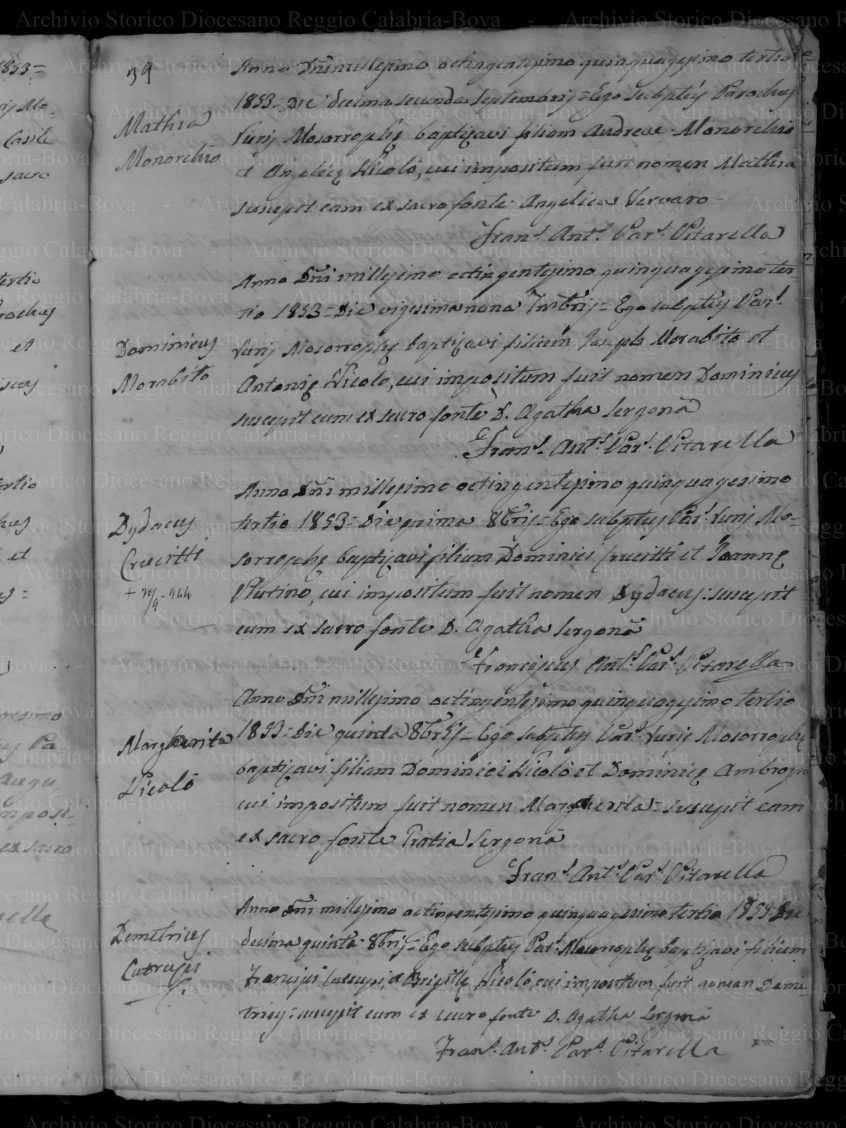 39
Mathia
Monorchio
Anno Dni millesimo octingentesimo quinquagesimo tertio
1853 = die decima secunda Septembris = Ego subptus Parochus
Ruris Mosorrophe baptizavi filiam Andreae Monorchio
et Angelice Nicolò, cui impositum fuit nomen Mathia
suscepit eam ex sacro fonte Angelica
Fran.s Ant.s Par.s Pitarella
Dominicus
Morabito
Anno Dni millesimo octingentesimo quinquagesimo ter
tio 1853 = Die vigesima nona 7mbris = Ego subptus Par.s
Ruris Mosorrophe baptizavi filium Joseph Morabito et
Antonie Nicolo, cui impositum fuit nomen Dominicus
suscepit eum ex sacro fonte D. Agatha Sergonà
Fran.s Ant.s Par.s Pitarella
Dydacus
Crucitti
+ 944
Anno Dni millesimo octingentesimo quinquagesimo
tertio 1853 = Die prima 8bris = Ego subptus Par.s Ruris Mo=
sorrophe baptizavi filium Dominici Crucitti et Joanne
Plutino, cui impositum fuit nomen Dydacus: suscepit
eum ex sacro fonte D. Agatha Sergonà
Franciscus Ant.s Par.s Pitarella
Margherita
Nicolò
Anno Dni millesimo octingentesimo quinquagesimo tertio
1853 = Die quinta 8bris = Ego subptus Par.s Ruris Mosorrophe
baptizavi filiam Dominici Nicolò et Dominice Ambrogio
cui impositum fuit nomen Margherita = suscepit eam
ex sacro fonte Sergonà
Fran.s Ant.s Par.s Pitarella
Demetrius
Cutrupi
Anno Dni millesimo octingentesimo quinquagesimo tertio 1853 = Die
decima quinta 8bris = Ego subptus Par.s Mosorrophe baptizavi filium
Francisci Cutrupi et Nicolò, cui impositum fuit nomen Deme
trius: suscepit eum ex sacro fonte D. Agatha Sergonà
Fran.s Ant.s Par.s Pitarella
Archivio Storico Diocesano Reggio Calabria-Bova